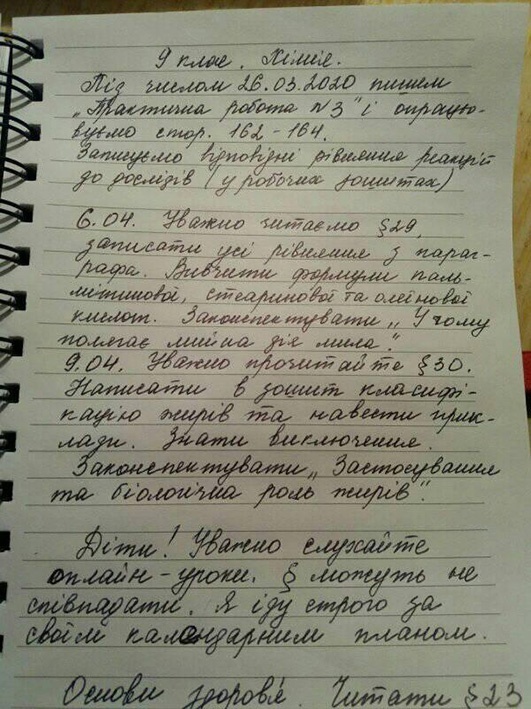 9 клас. Хімія.
Під числом 26.03.2020 пишем
„Практична робота №3" і опрацьо-
вуємо стор. 162-164.
Записуємо відповідні рівняння реакцій
до дослідів (у робочих зошитах)
6.04. Уважно читаємо §29,
записати усі рівняння з параг-
рафа. Вивчити формули паль-
мітинової, стеаринової та олеїнової
кислот. Законспектувати „У чому
полягає мийна дія мила".
9.04. Уважно прочитайте §30.
Написати в зошит класифі-
кацію жирів та навести прик-
лади. Знати виключення.
Законспектувати „Застосування
та біологічна роль жирів".
Діти! Уважно слухайте
онлайн-уроки. § можуть не
співпадати. Я іду строго за
своїм календарним планом.
Основи здоров'я. Читати §23